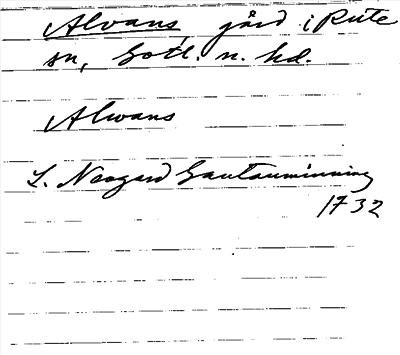 Alvans, gård i Rute
sn, Gotl. n. hd.
Alwans
L. Neogard Gautauminning
1732